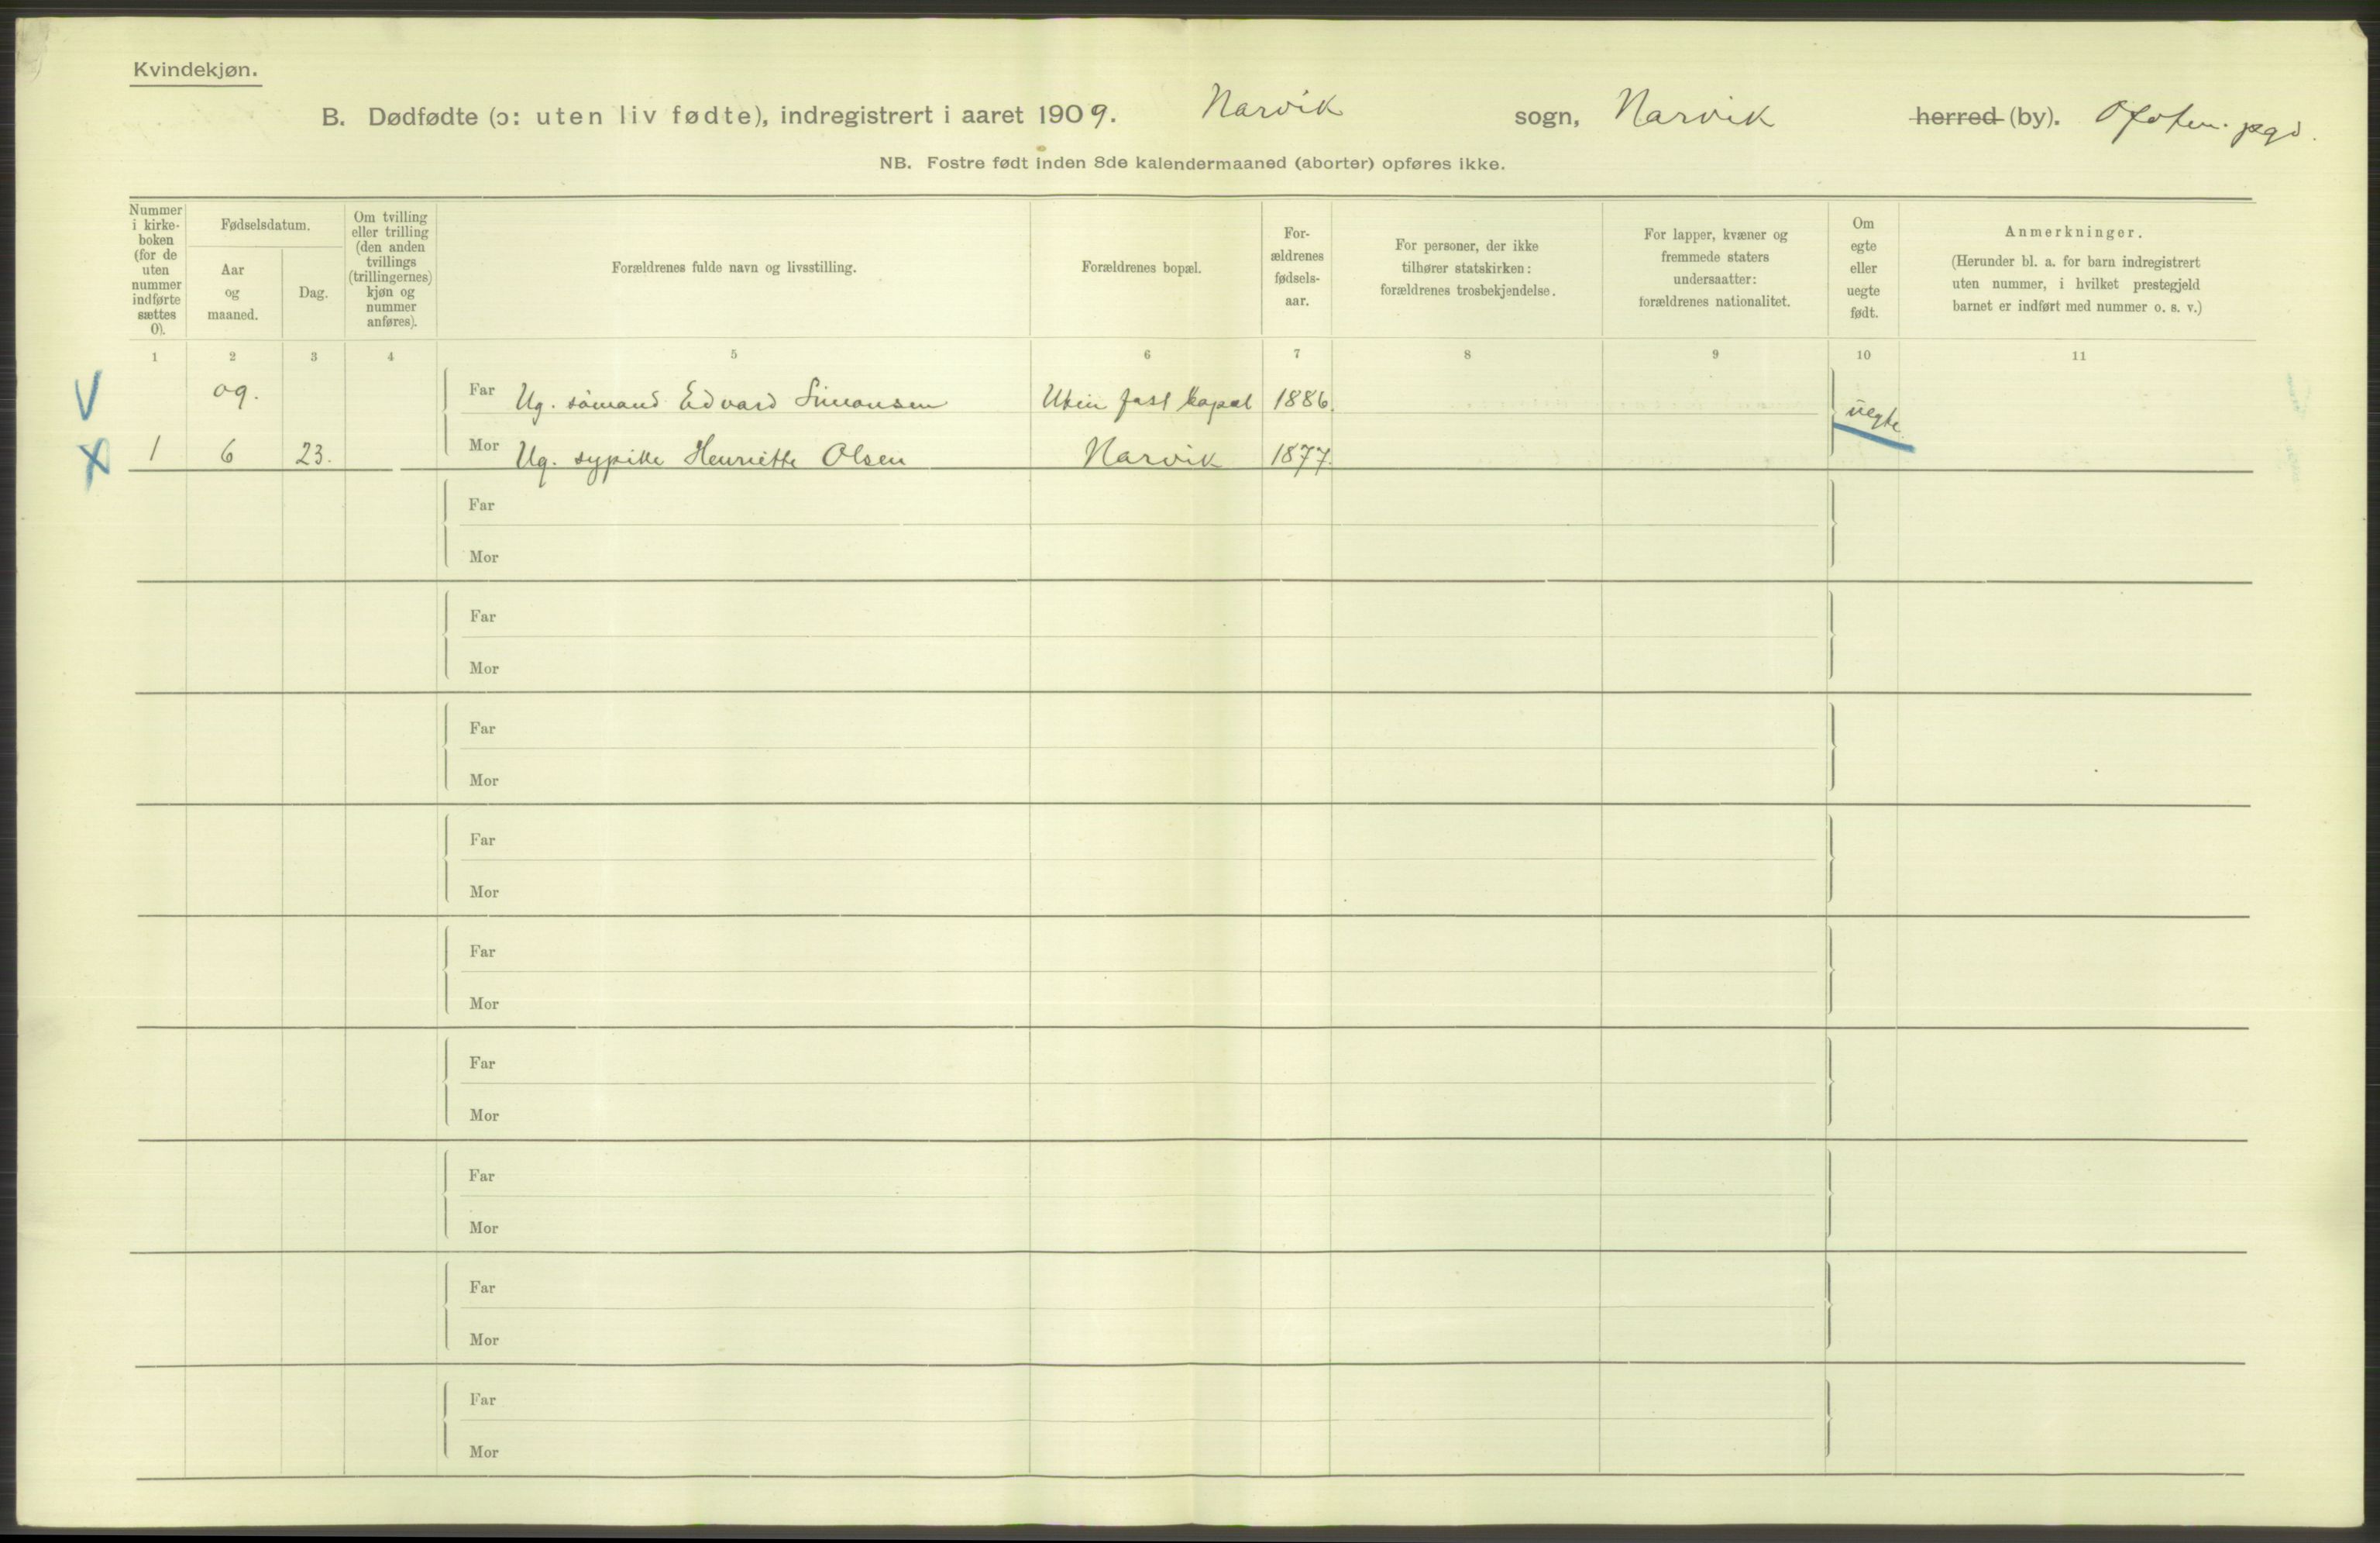 Kvindekjøn.
B. Dødfødte (ɔ: uten liv fødte), indregistrert i aaret 1909. Narvik sogn, Narvik herred (by). Ofoten pgd.
NB. Fostre født inden 8de kalendermaaned (aborter) opføres ikke.
Nummer
i kirke-
boken
(for de
uten
nummer
indførte
sættes
0).
Fødselsdatum.
Aar
og
maaned.
Dag.
Om tvilling
eller trilling
(den anden
tvillings
(trillingernes)
kjøn og
nummer
anføres).
Forældrenes fulde navn og livsstilling.
Forældrenes bopæl.
For-
ældrenes
fødsels-
aar.
For personer, der ikke
tilhører statskirken:
forældrenes trosbekjendelse.
For lapper, kvæner og
fremmede staters
undersaatter:
forældrenes nationalitet.
Om
egte
eller
uegte
født.
Anmerkninger.
(Herunder bl. a. for barn indregistrert
uten nummer, i hvilket prestegjeld
barnet er indført med nummer o. s. v.)
1 2 3 4 5 6 7 8 9 10 11
V 09. Far Ug. sømand Edvard Simonsen Uten fast bopæl 1886. uegte
X 1 6 23. Mor Ug. sypike Henriette Olsen Narvik 1877.
Far
Mor
Far
Mor
Far
Mor
Far
Mor
Far
Mor
Far
Mor
Far
Mor
Far
Mor
Far
Mor